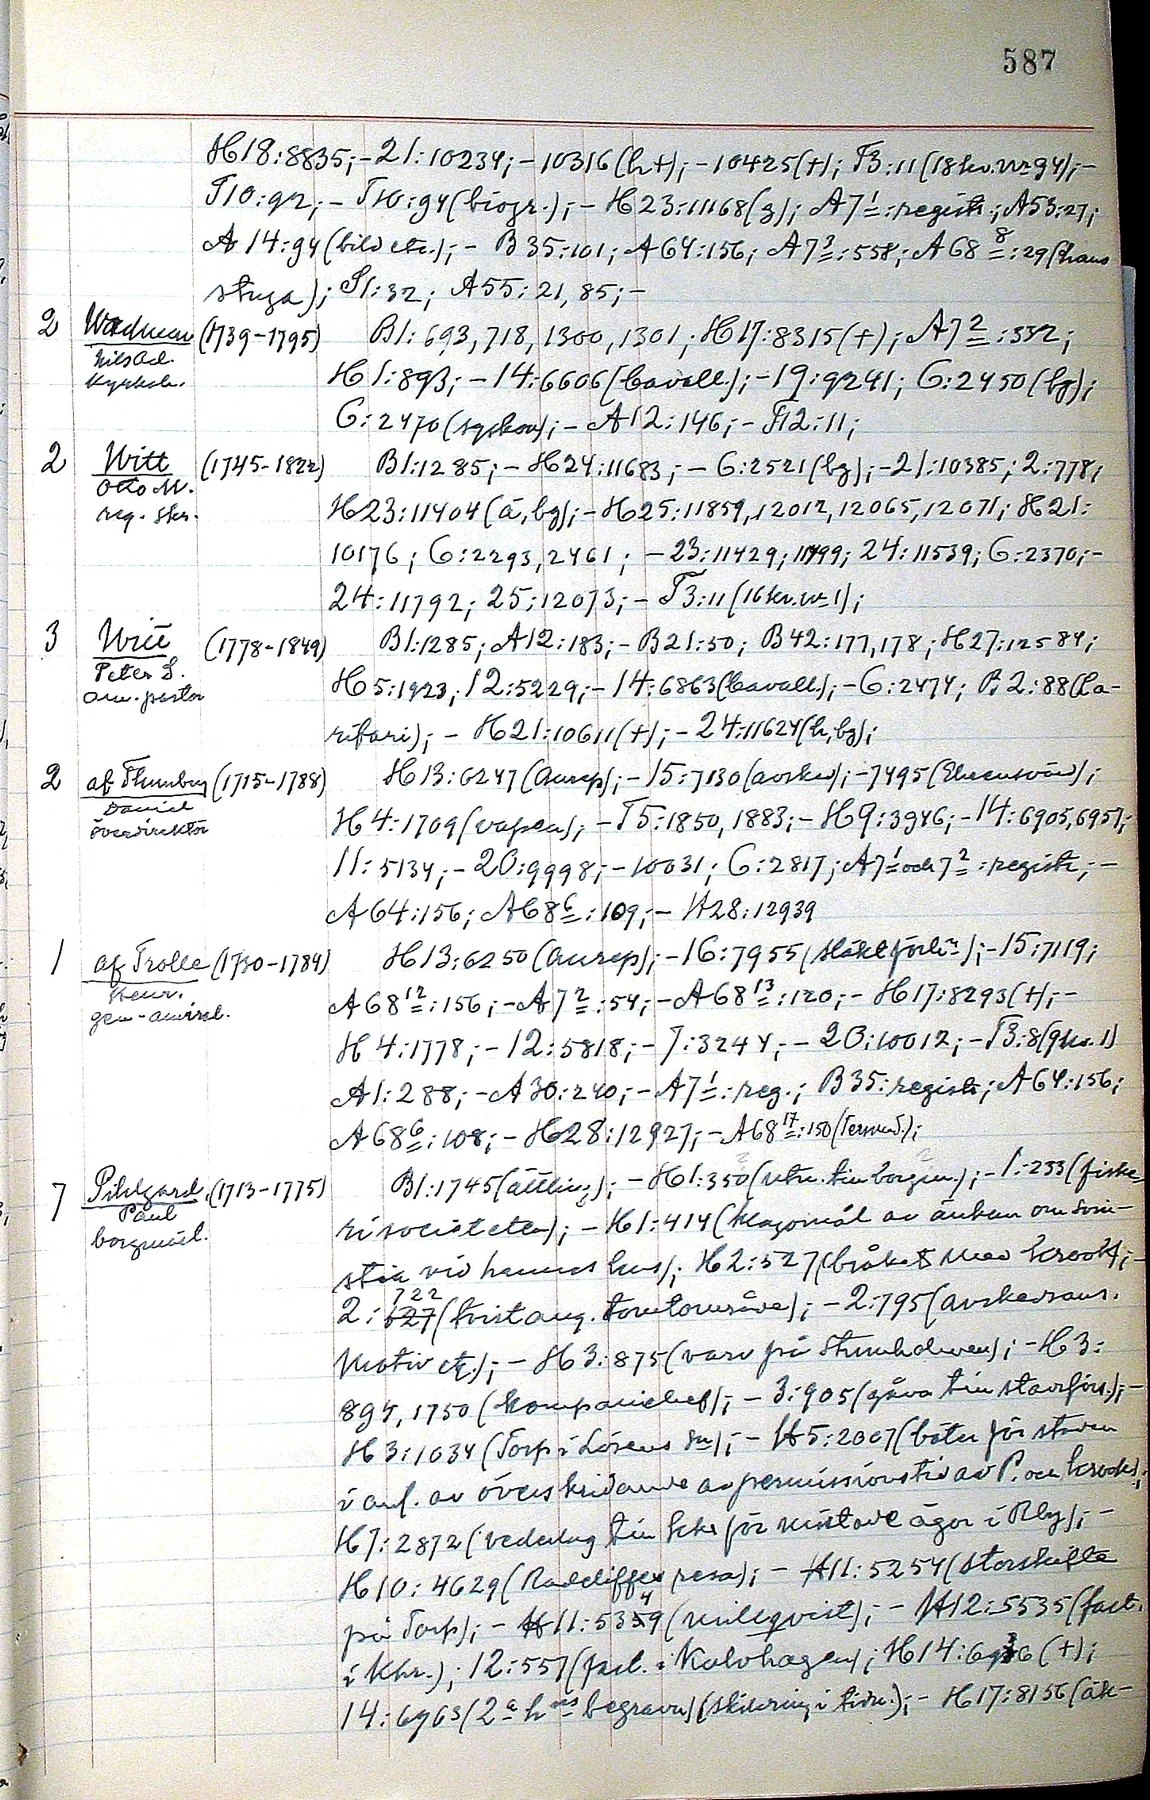 587
H18:8835; - 21:10234; - 10316(h+); - 10425(+); T3:11(18kv.No94); -
T10:92; - T10:94(biogr.); - H23:11168(g); A7 1:registr; A53:27;
A 14:94(bild etc.); - B35:101; A64:156; A7 3:558; A68 8:29(hans
stuga); S1:32; A55:21,85; -
2 Wadman (1739-1795) B1:693,718,1300,1301; H17:8315(+); A7 2:332;
Nils Ad.
kyrkoh. H1:893; - 14:6606(kavall.); - 19:9241; G:2450(bg);
G:2470(syskon); - A12:146; - F12:11;
2 Witt (1745-1822) B1:1285; - H24:11683; - G:2521(bg); - 21:10385; 2:778;
Otto M.
reg. skr. H23:11404(ä,bg); - H25:11859,12012,12065,12071; H21:
10176; G:2293,2461; - 23:11429; 11499; 24:11539; G:2370; -
24:11792; 25:12073; - T3:11(16kv.No1);
3 Witt (1778-1849) B1:1285; A12:183; - B21:50; B42:177,178; H27:12584;
Peter S.
om. pastor H5:1923; 12:5229; - 14:6863(kavall.); - G:2474; B2:88(La-
rifari); - H21:10611(+); - 24:11624(h,bg);
2 af Thunberg (1715-1788) H13:6247(Anrep); - 15:7130(avsked); - 7495(Ehrensvärd);
Daniel
överdirektör H4:1709(vapen); - T5:1850,1883; - H9:3946; - 14:6905,6957;
11:5134; - 20:9998; - 10031; G:2817; A7 1 och 7 2:registr; -
A64:156; A68 6:109; - H28:12939
1 af Trolle (1730-1784) H13:6250(Anrep); - 16:7955(släktförh.); - 15:7119;
Henr.
gen-amiral. A68 12:156; - A7 2:54; - A68 13:120; - H17:8293(+); -
H4:1778; - 12:5818; - 7:3244; - 20:10012; - T3:8(9kv.1)
A1:288; - A30:240; - A7 1:reg.; B35:registr; A64:156;
A68 6:108; - H28:12927; - A68 17:150(Tersm.);
7 Pihlgard (1713-1775) B1:1745(ättling); - H1:350(utn. till borgm.); - 1:233(fiske-
Paul
borgmäst. risocieteten); - H1:414(klagomål av änkan om svin-
stia vid hennes hus); H2:527(bråket med Krook); -
2:722(kvist ang. tomtområde); - 2:795(avskedsans.
motiv etc.); - H3:875(varv på Stumholmen); - H3:
894,1750(kompanichef); - 3:905(gåva till stadsförs.); -
H3:1034(Torp i Lösens sn); - H5:2007(böter för staden
i anl. av överskridande av permissionstid av P. och Krook);
H7:2872(vederlag till for mistade ägor i Rby); -
H10:4629(Radcliffes resa); - H11:5254(storskifte
på Torp); - H11:5349(Milqvist); - H12:5535(fast.
i Khr.); 12:557(fast. i Kalvhagen); H14:6936(+);
14:6963(2a hns begravn)(skildring i tidn.); - H17:8156(äk-